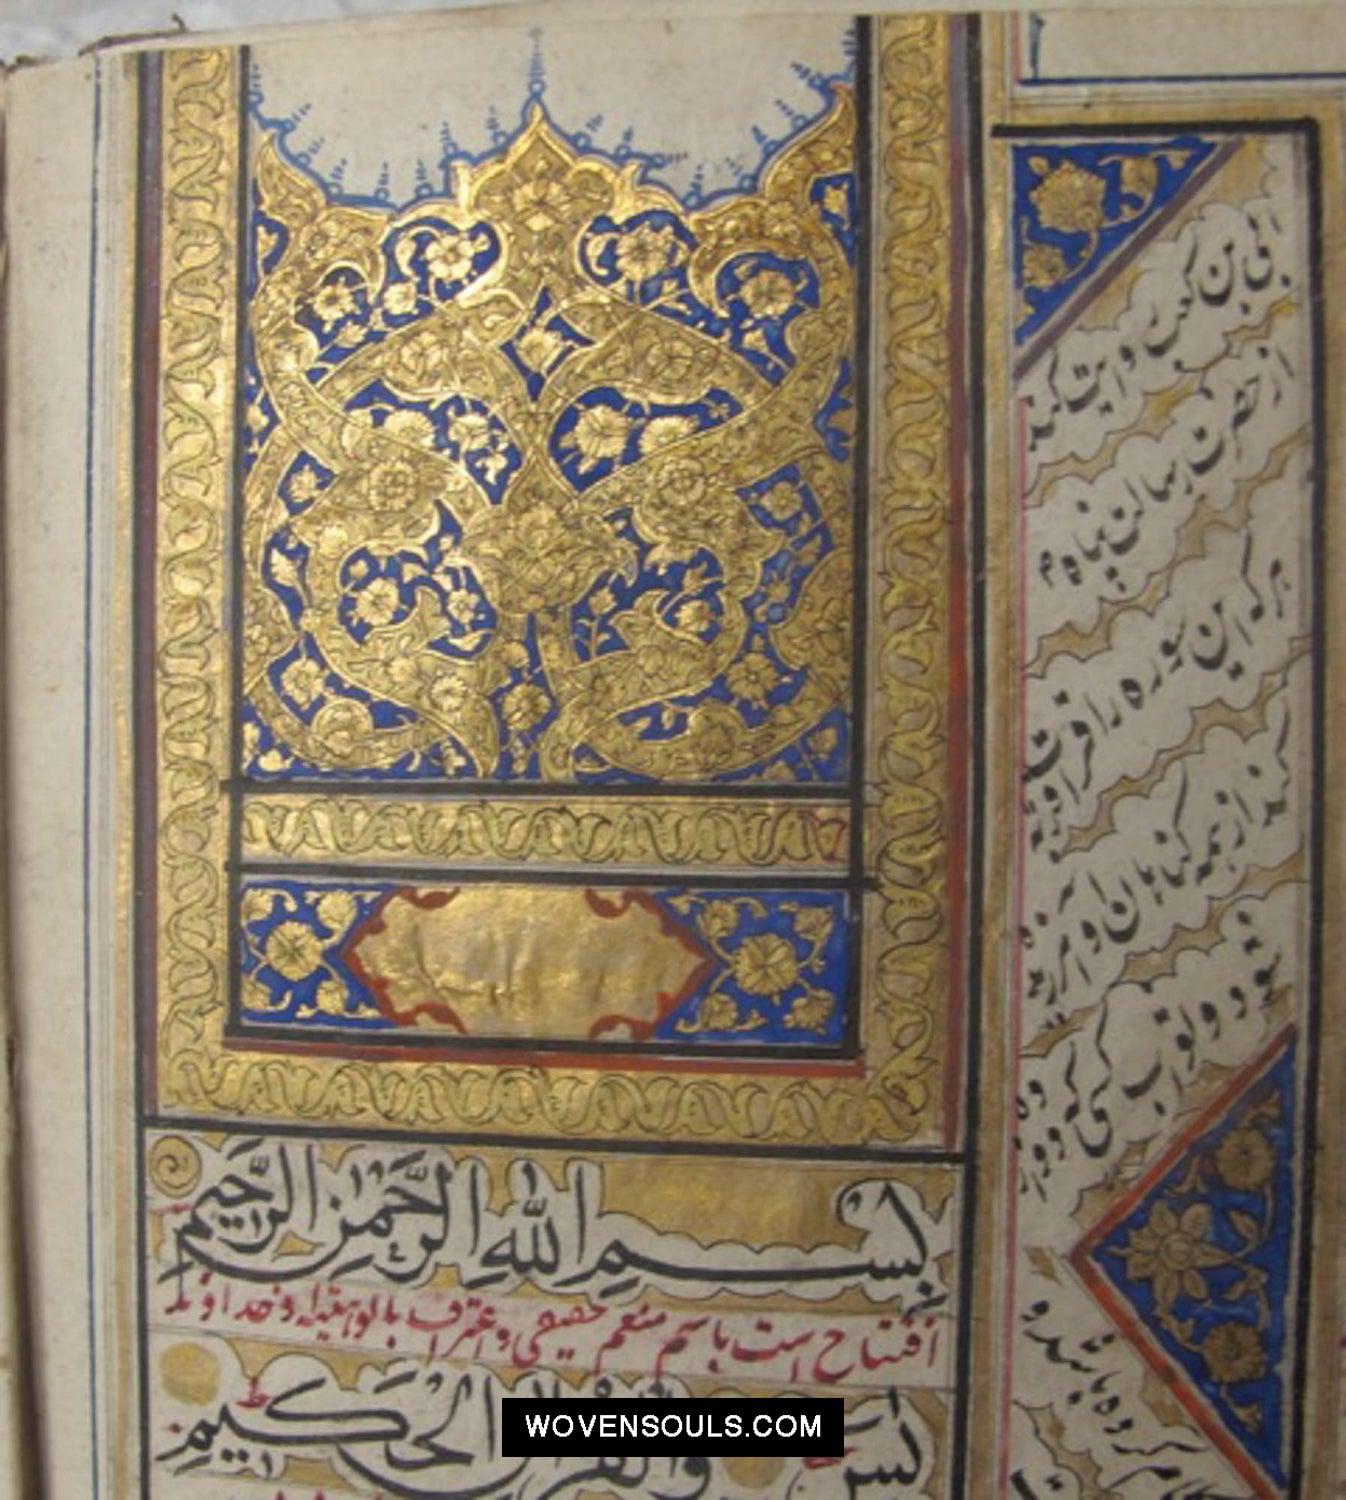 بِسْمِ اللهِ الرَّحْمٰنِ الرَّحِيمِ
افتتاح است باسم منعم حقیقی و اعتراف بالوهیت و خداوند
يٰسۤ وَالْقُرْآنِ الْحَكِيمِ
ابی بن کعب روایت کند
از حضرت رسالت پناه م
هر که این سوره را قرائت
کند از همه گناهان او آمرزیده
شود و ثواب کسی که دوازده
WOVENSOULS.COM